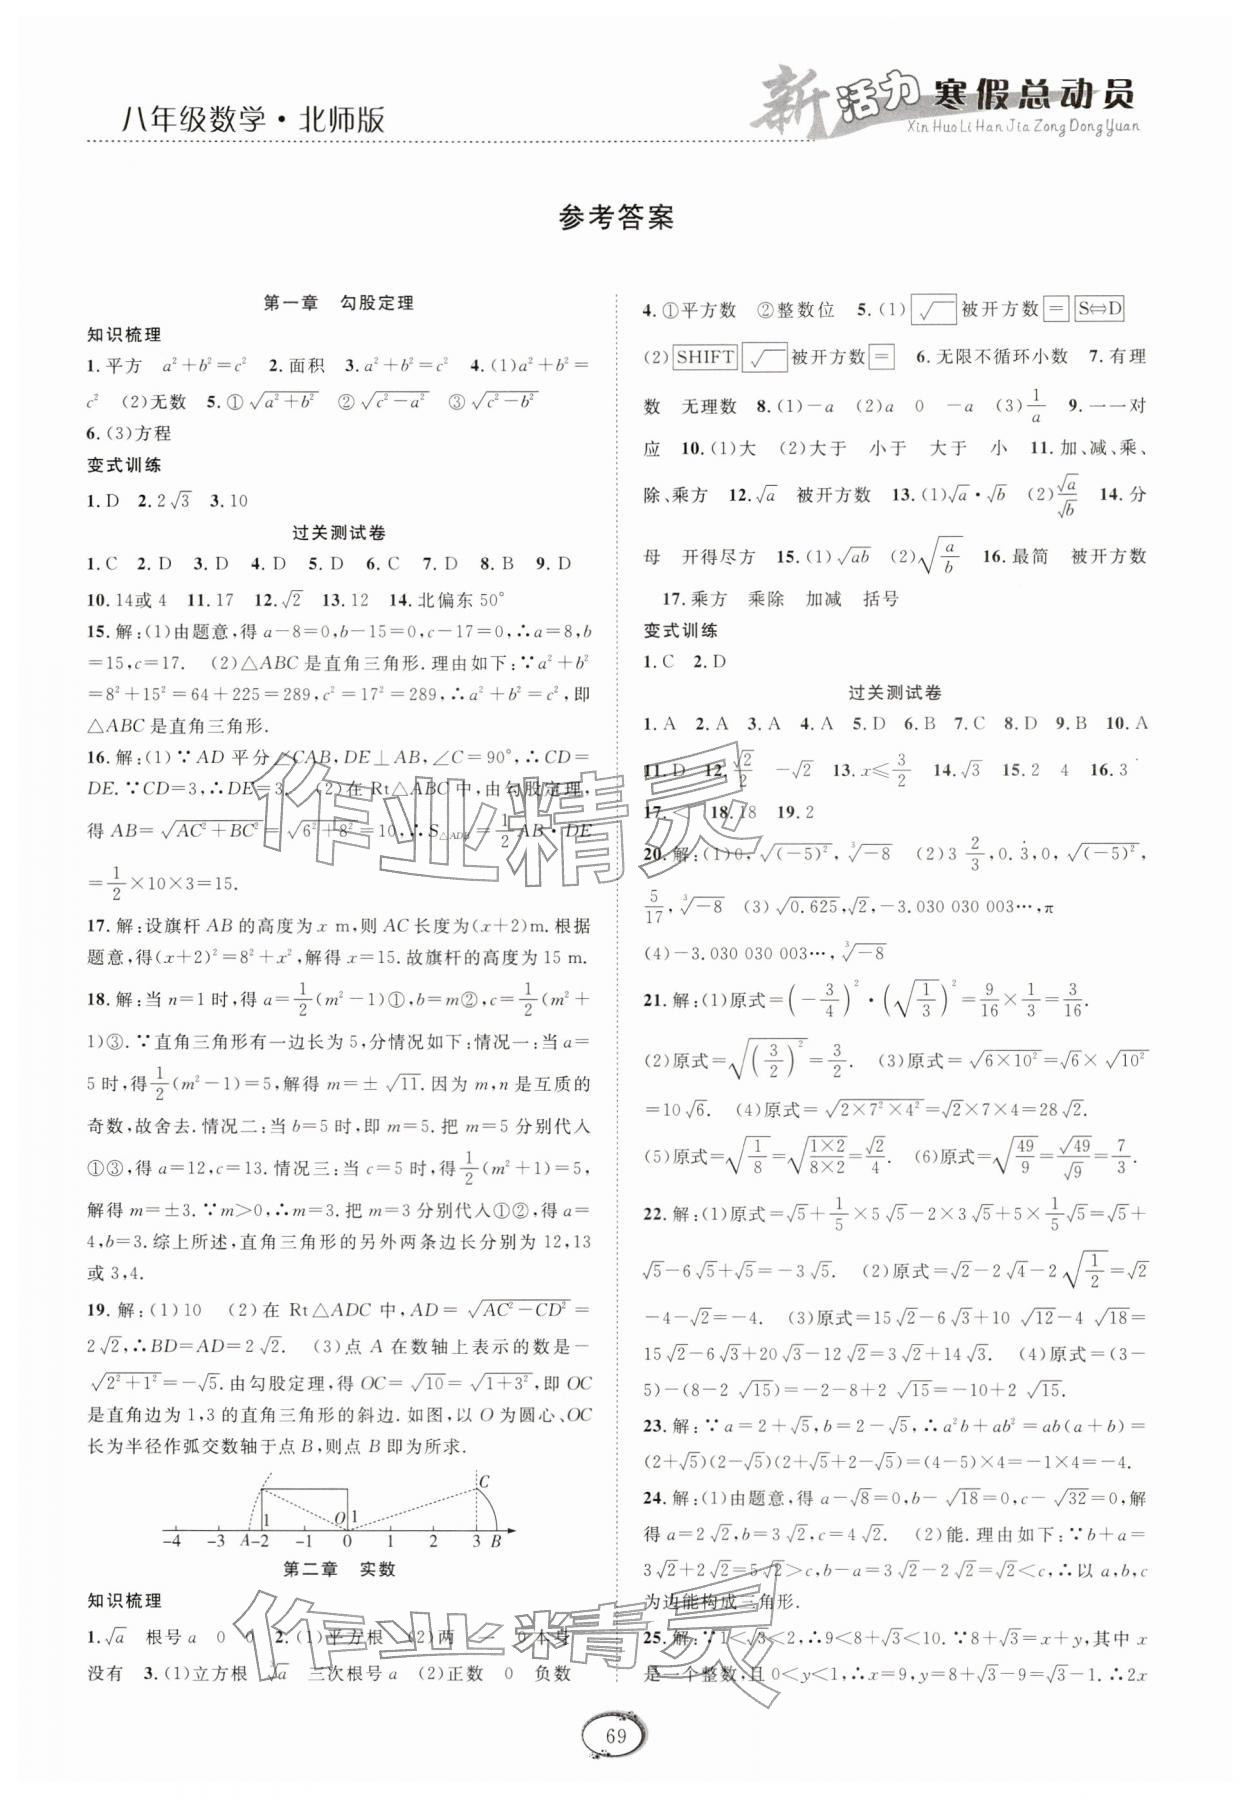 八年级数学·北师版
新活力 寒假总动员
Xin Huo Li Han Jia Zong Dong Yuan
参考答案
第一章 勾股定理
知识梳理
1.平方 a²+b²=c² 2.面积 3.a²+b²=c² 4.(1)a²+b²=
c² (2)无数 5.①√(a²+b²) ②√(c²-a²) ③√(c²-b²)
6.(3)方程
变式训练
1.D 2.2√3 3.10
过关测试卷
1.C 2.D 3.D 4.D 5.D 6.C 7.D 8.B 9.D
10.14或4 11.17 12.√2 13.12 14.北偏东50°
15.解:(1)由题意,得a-8=0,b-15=0,c-17=0,∴a=8,b
=15,c=17. (2)△ABC是直角三角形.理由如下:∵a²+b²
=8²+15²=64+225=289,c²=17²=289,∴a²+b²=c²,即
△ABC是直角三角形.
16.解:(1)∵AD平分∠CAB,DE⊥AB,∠C=90°,∴CD=
DE.∵CD=3,∴DE=3. (2)在Rt△ABC中,由勾股定理,
得AB=√(AC²+BC²)=√(6²+8²)=10,∴S△ADB=1/2 AB·DE
=1/2×10×3=15.
17.解:设旗杆AB的高度为x m,则AC长度为(x+2)m.根据
题意,得(x+2)²=8²+x²,解得x=15.故旗杆的高度为15 m.
18.解:当n=1时,得a=1/2(m²-1)①,b=m②,c=1/2(m²+
1)③.∵直角三角形有一边长为5,分情况如下:情况一:当a=
5时,得1/2(m²-1)=5,解得m=±√11.因为m,n是互质的
奇数,故舍去.情况二:当b=5时,即m=5.把m=5分别代入
①③,得a=12,c=13.情况三:当c=5时,得1/2(m²+1)=5,
解得m=±3.∵m>0,∴m=3.把m=3分别代入①②,得a=
4,b=3.综上所述,直角三角形的另外两条边长分别为12,13
或3,4.
19.解:(1)10 (2)在Rt△ADC中,AD=√(AC²-CD²)=
2√2,∴BD=AD=2√2. (3)点A在数轴上表示的数是-
√(2²+1²)=-√5.由勾股定理,得OC=√10=√(1+3²),即OC
是直角边为1,3的直角三角形的斜边.如图,以O为圆心、OC
长为半径作弧交数轴于点B,则点B即为所求.
C
1 O 1
-4 -3 A -2 -1 0 1 2 3 B
第二章 实数
知识梳理
1.√a 根号a 0 0 2.(1)平方根 (2)两 一 0本身
没有 3.(1)立方根 ³√a 三次根号a (2)正数 0 负数
4.①平方数 ②整数位 5.(1)√ 被开方数 = S⇔D
(2)SHIFT √ 被开方数 = 6.无限不循环小数 7.有理
数 无理数 8.(1)-a (2)a 0 -a (3)1/a 9.一一对
应 10.(1)大 (2)大于 小于 大于 小 11.加、减、乘、
除、乘方 12.√a 被开方数 13.(1)√a·√b (2)√a/√b 14.分
母 开得尽方 15.(1)√ab (2)√(a/b) 16.最简 被开方数
17.乘方 乘除 加减 括号
变式训练
1.C 2.D
过关测试卷
1.A 2.A 3.A 4.A 5.D 6.B 7.C 8.D 9.B 10.A
11.D 12.√2/2 -√2 13.x≤3/2 14.√3 15.2 4 16.3
17.< 18.18 19.2
20.解:(1)0,√((-5)²),³√-8 (2)3 2/3,0.3̇,0,√((-5)²),
5/17,³√-8 (3)√0.625,√2,-3.030 030 003…,π
(4)-3.030 030 003…,³√-8
21.解:(1)原式=(-3/4)²·(√(1/3))²=9/16×1/3=3/16.
(2)原式=√((3/2)²)=3/2. (3)原式=√(6×10²)=√6×√(10²)
=10√6. (4)原式=√(2×7²×4²)=√2×7×4=28√2.
(5)原式=√(1/8)=√((1×2)/(8×2))=√2/4. (6)原式=√(49/9)=√49/√9=7/3.
22.解:(1)原式=√5+1/5×5√5-2×3√5+5×1/5√5=√5+
√5-6√5+√5=-3√5. (2)原式=√2-2√4-2√(1/2)=√2
-4-√2=-4. (3)原式=15√2-6√3+10√12-4√18=
15√2-6√3+20√3-12√2=3√2+14√3. (4)原式=(3-
5)-(8-2√15)=-2-8+2√15=-10+2√15.
23.解:∵a=2+√5,b=2-√5,∴a²b+ab²=ab(a+b)=
(2+√5)(2-√5)(2+√5+2-√5)=(4-5)×4=-1×4=-4.
24.解:(1)由题意,得a-√8=0,b-√18=0,c-√32=0,解
得a=2√2,b=3√2,c=4√2. (2)能.理由如下:∵b+a=
3√2+2√2=5√2>c,b-a=3√2-2√2=√2<c,∴以a,b,c
为边能构成三角形.
25.解:∵1<√3<2,∴9<8+√3<10.∵8+√3=x+y,其中x
是一个整数,且0<y<1,∴x=9,y=8+√3-9=√3-1.∴2x
69
作业精灵
作业精灵